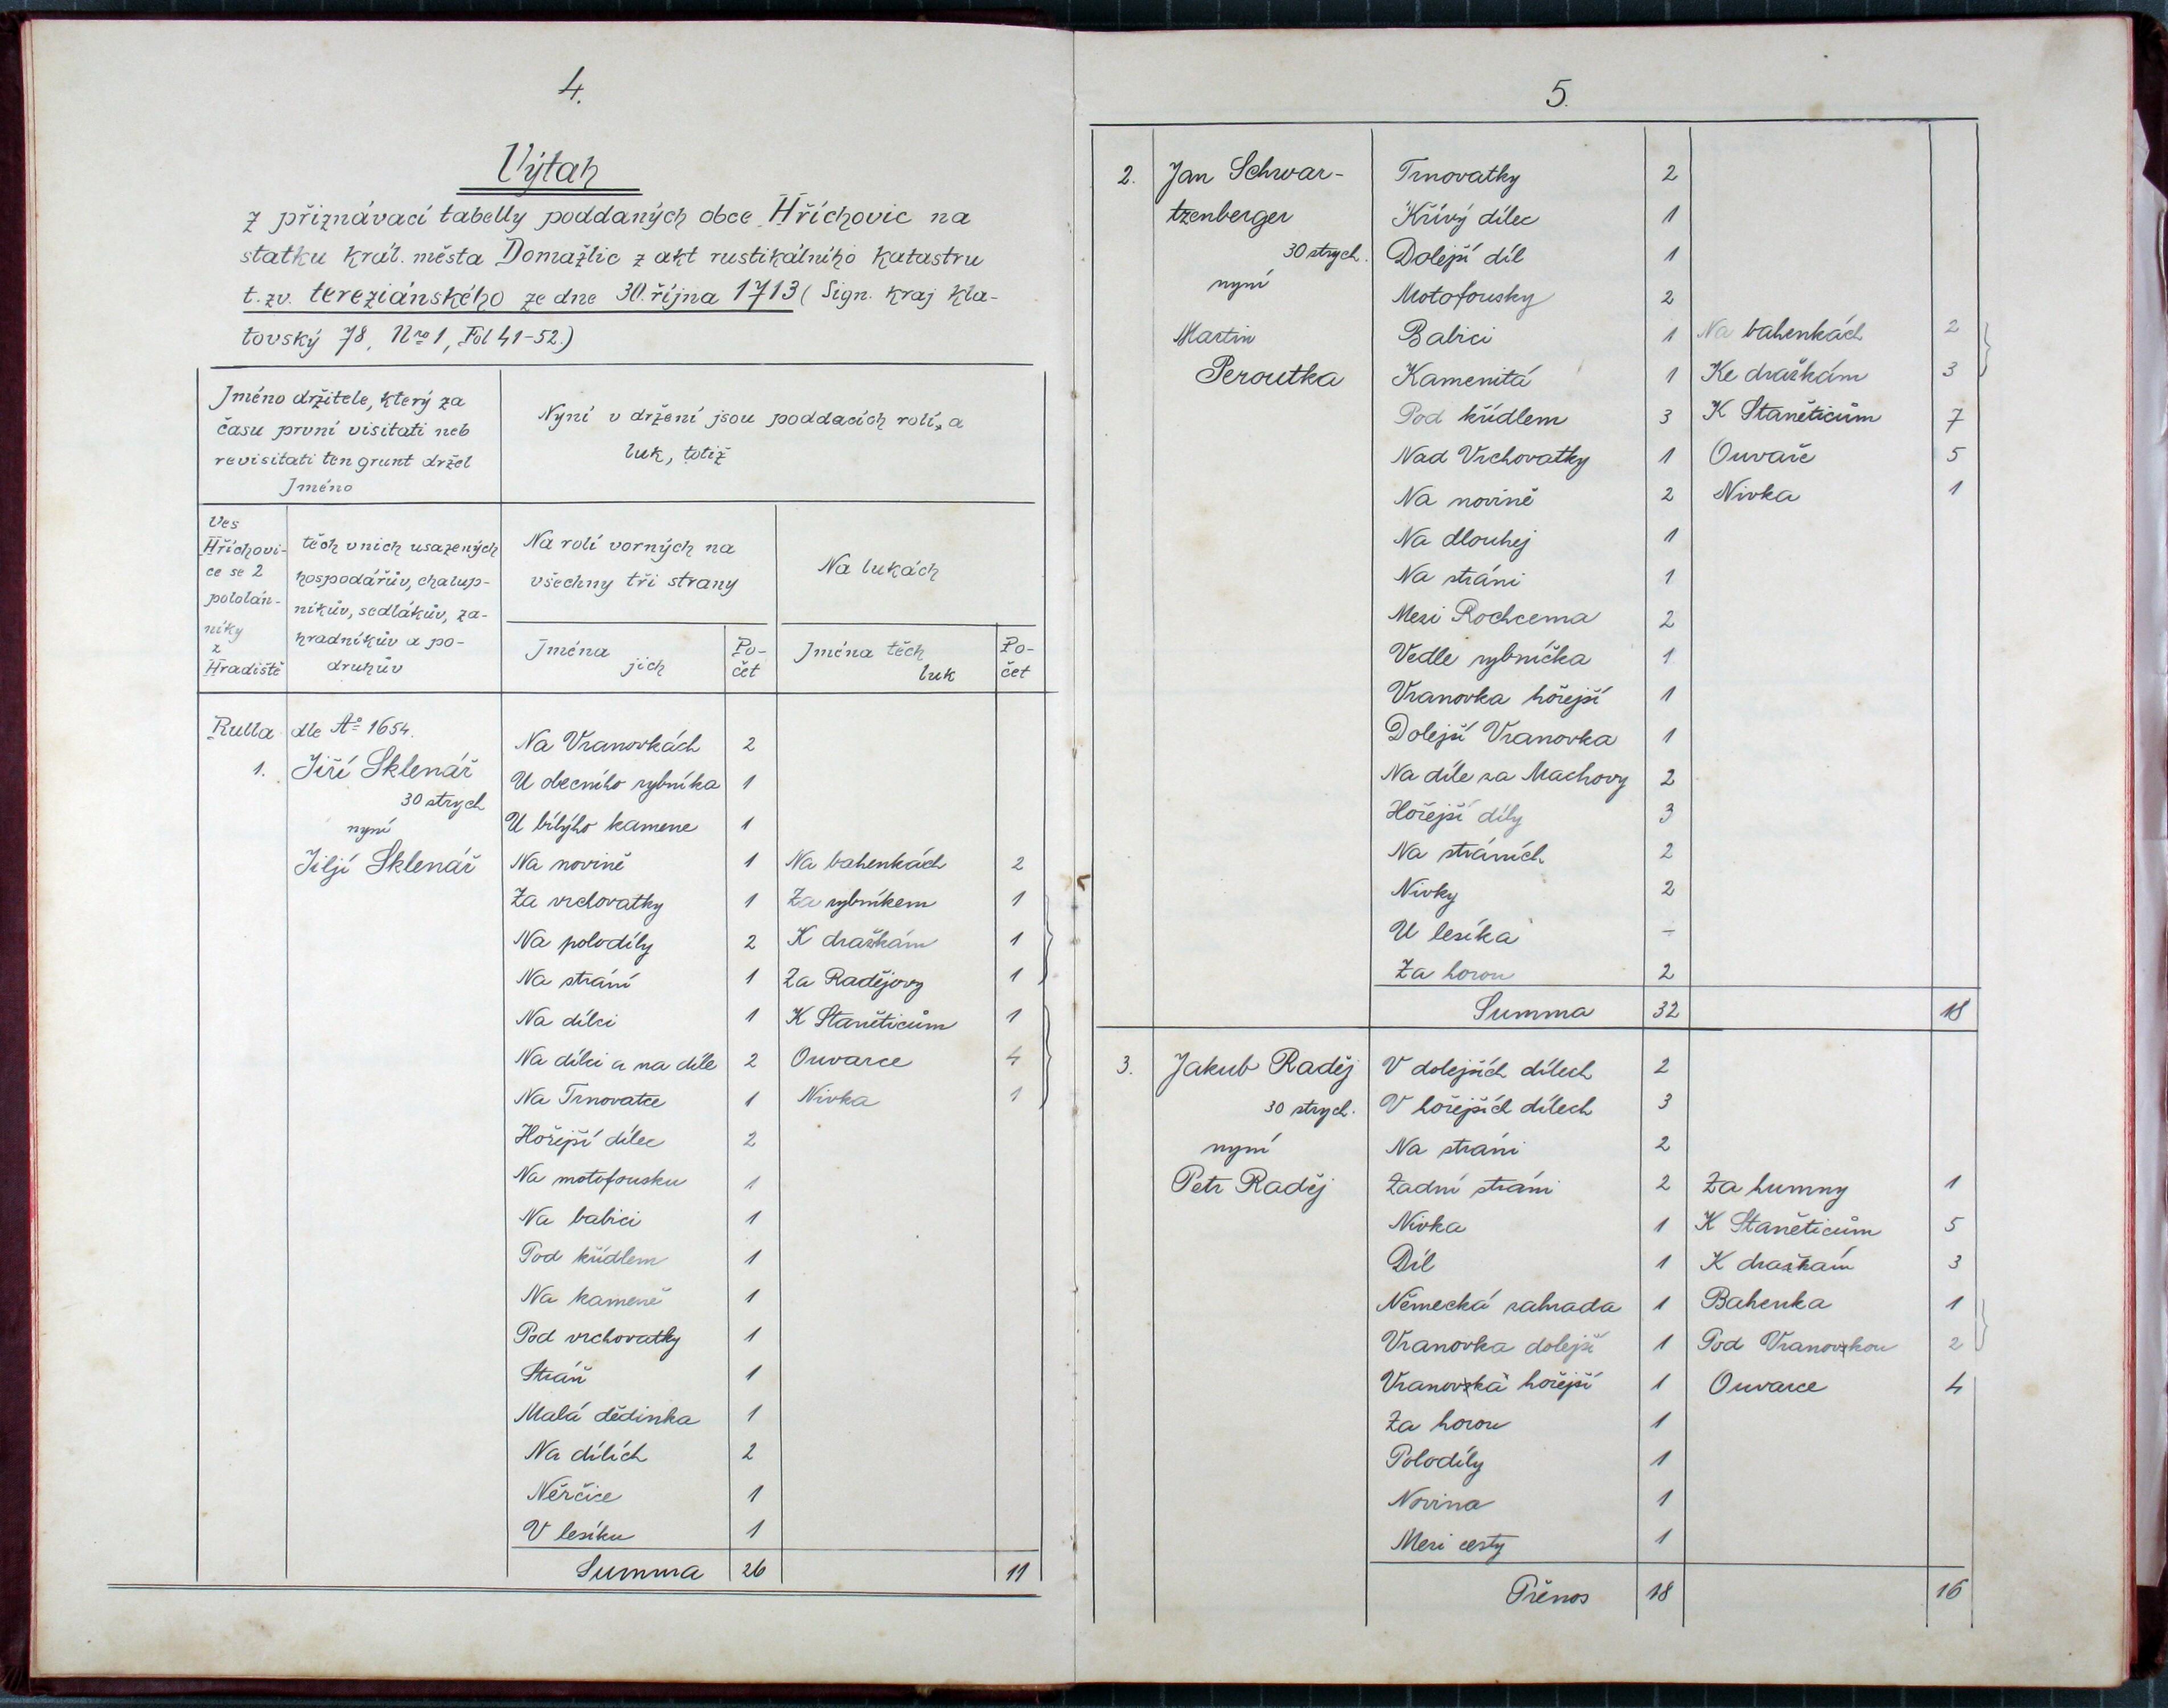 4.
Výtah
z přiznávací tabelly poddaných obce Hříchovic na
statku král. města Domažlic z akt rustikálního katastru
t. zv. tereziánského ze dne 30. října 1713 (Sign. kraj Kla-
tovský 78, Nro 1, Fol 41-52.)
Jméno držitele, který za
času první visitati neb
revisitati ten grunt držel
Jméno
Nyní v držení jsou poddacích rolí, a
luk, totiž
Ves
Hříchovi-
ce se 2
pololán-
níky
z
Hradiště
těch v nich usazených
hospodářův, chalup-
níkův, sedlákův, za-
hradníkův a po-
druhův
Na rolí vorných na
všechny tři strany
Na lukách
Jména
jich
Po-
čet
Jména těch
luk
Po-
čet
Rulla dle Ao 1654.
Na Vranovkách 2
1. Jiří Sklenář U obecního rybníka 1
30 strych
nyní U bílýho kamene 1
Jiljí Sklenář Na novině 1 Na bahenkách 2
Za vrchovatky 1 Za rybníkem 1
Na polodíly 2 K dražkám 1
Na strání 1 Za Radějovy 1
Na dílci 1 K Staněticům 1
Na dílci a na díle 2 Ouvarce 4
Na Trnovatce 1 Nivka 1
Hořejší dílec 2
Na motofousku 1
Na babici 1
Pod křídlem 1
Na kameně 1
Pod vrchovatky 1
Stráň 1
Malá dědinka 1
Na dílích 2
Něrčice 1
V lesíku 1
Summa 26 11
5.
2. Jan Schwar- Trnovatky 2
tzenberger Křivý dílec 1
30 strych. Dolejší díl 1
nyní Motofousky 2
Martin Babici 1 Na bahenkách 2
Peroutka Kamenitá 1 Ke dražkám 3
Pod křídlem 3 K Staněticům 7
Nad Vrchovatky 1 Ouvaře 5
Na novině 2 Nivka 1
Na dlouhej 1
Na stráni 1
Mezi Rochcema 2
Vedle rybníčka 1
Vranovka hořejší 1
Dolejší Vranovka 1
Na díle za Machovy 2
Hořejší díly 3
Na stráních 2
Nivky 2
U lesíka -
Za horou 2
Summa 32 18
3. Jakub Raděj V dolejších dílech 2
30 strych. V hořejších dílech 3
nyní Na stráni 2
Petr Raděj Zadní stráni 2 Za humny 1
Nivka 1 K Staněticům 5
Díl 1 K dražkám 3
Německá zahrada 1 Bahenka 1
Vranovka dolejší 1 Pod Vranovkou 2
Vranovka hořejší 1 Ouvarce 4
Za horou 1
Polodíly 1
Novina 1
Mezi cesty 1
Přenos 18 16